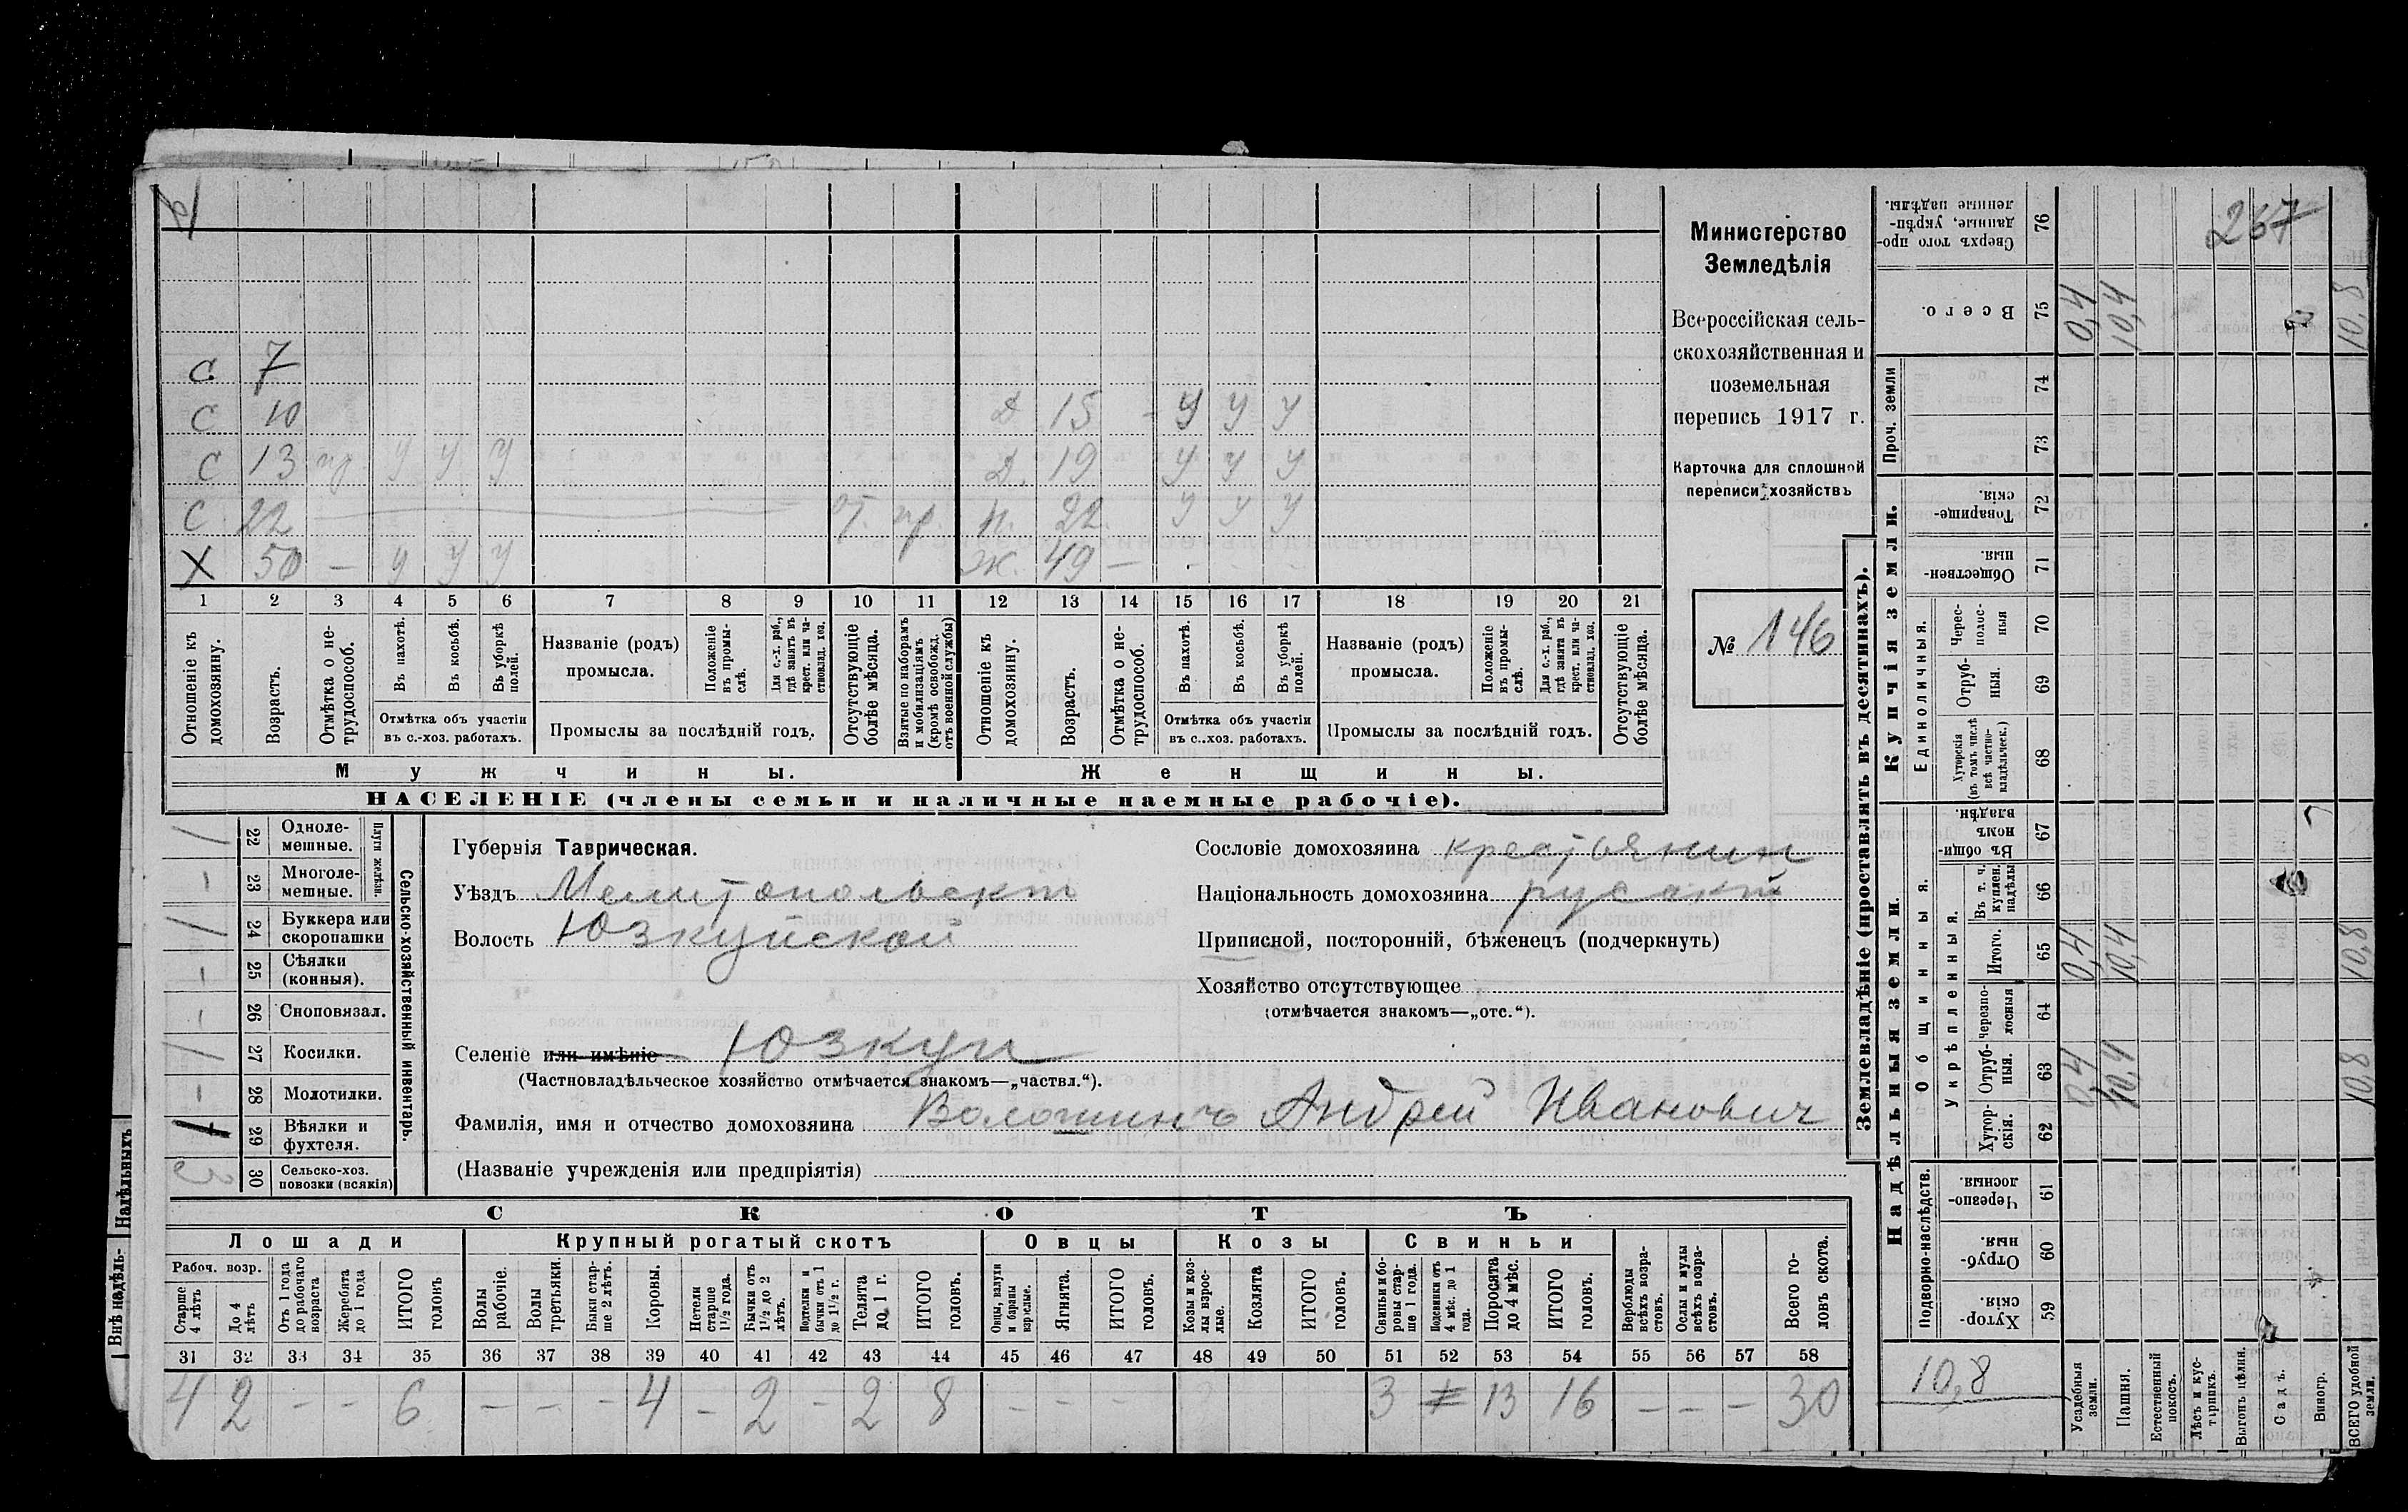 267
С 7
С 10 Д 15 - у у у
С 13 пр. у у у Д. 19 у у у
С 22 от. пр. н. 22. у у у
Х 50 — у у у ж. 49 —
1 2 3 4 5 6 7 8 9 10 11 12 13 14 15 16 17 18 19 20 21
Отношеніе къ домохозяину.
Возрастъ.
Отмѣтка о не-трудоспособ.
Въ пахотѣ.
Въ косьбѣ.
Въ уборкѣ полей.
Отмѣтка объ участіи въ с.-хоз. работахъ.
Названіе (родъ) промысла.
Положеніе въ промы-слѣ.
Для с.-х. раб., гдѣ занятъ въ крест. или ча-стновлад. хоз.
Промыслы за послѣдній годъ.
Отсутствующіе болѣе мѣсяца.
Взятые по наборамъ и мобилизаціямъ (кромѣ освобожд. отъ военной службы)
Отношеніе къ домохозяину.
Возрастъ.
Отмѣтка о не-трудоспособ.
Въ пахотѣ.
Въ косьбѣ.
Въ уборкѣ полей.
Отмѣтка объ участіи въ с.-хоз. работахъ.
Названіе (родъ) промысла.
Положеніе въ промы-слѣ.
Для с.-х. раб., гдѣ занята въ крест. или ча-стновлад. хоз.
Промыслы за послѣдній годъ.
Отсутствующіе болѣе мѣсяца.
Мужчины. Женщины.
НАСЕЛЕНІЕ (члены семьи и наличные наемные рабочіе).
Министерство
Земледѣлія
Всероссійская сель-
скохозяйственная и
поземельная
перепись 1917 г.
Карточка для сплошной
переписи хозяйствъ
№ 146
Сельско-хозяйственный инвентарь.
Плуги желѣзн.
/ 22 Одноле-мешные.
- 23 Многоле-мешные.
/ 24 Буккера или скоропашки
- 25 Сѣялки (конныя).
- 26 Сноповязал.
/ 27 Косилки.
- 28 Молотилки.
29 Вѣялки и фухтеля.
30 Сельско-хоз. повозки (всякія)
Губернія Таврическая.
Уѣздъ Мелитопольскій
Волость Юзкуйской
Селеніе или имѣніе Юзкуи
(Частновладѣльческое хозяйство отмѣчается знакомъ—„частвл.“).
Фамилія, имя и отчество домохозяина Волошинъ Андрей Иванович
(Названіе учрежденія или предпріятія)
Сословіе домохозяина крестьянин
Національность домохозяина
Приписной, посторонній, бѣженецъ (подчеркнуть)
Хозяйство отсутствующее
(отмѣчается знакомъ—„отс.“).
СКОТЪ
Лошади Крупный рогатый скотъ Овцы Козы Свиньи
Рабоч. возр.
Старше 4 лѣтъ
До 4 лѣтъ
Отъ 1 года до рабочаго возраста
Жеребята до 1 года
ИТОГО головъ
Волы рабочіе.
Волы третьяки.
Быки стар-ше 2 лѣтъ.
Коровы.
Нетели старше 1½ года.
Бычки отъ 1½ до 2 лѣтъ.
Подтелки и бычки отъ 1 до 1½ г.
Телята до 1 г.
ИТОГО головъ.
Овцы, валухи и бараны взрослые.
Ягнята.
ИТОГО головъ.
Козы и коз-лы взрос-лые.
Козлята
ИТОГО головъ.
Свиньи и бо-ровы стар-ше 1 года.
Подсвинки отъ 4 мѣс. до 1 года.
Поросята до 4 мѣс.
ИТОГО головъ.
Верблюды всѣхъ возра-стовъ.
Ослы и мулы всѣхъ возра-стовъ.
Всего го-ловъ скота.
31 32 33 34 35 36 37 38 39 40 41 42 43 44 45 46 47 48 49 50 51 52 53 54 55 56 57 58
4 2 - - 6 - - - 4 - 2 - 2 8 - - - 3 13 16 - - - 30
Землевладѣніе (проставлять въ десятинахъ).
Купчія земли.
Надѣльныя земли.
76 Сверхъ того про-данные, укрѣп-ленные надѣлы.
75 Всего. 0,4 10,4 10,8
Проч. земли
74
73
72 Товарище-скія.
71 Обществен-ныя.
Единоличныя.
70 Черес-полос-ныя
69 Отруб-ныя.
68 Хуторскія (въ томъ числѣ всѣ частно-владѣльческ.)
Общинныя.
67 Въ общи-номъ владѣн.
Укрѣпленныя.
66 Въ т. ч. куплен. надѣлы
65 Итого. 0,4 10,4 10,8
64 черезпо-лосныя
63 Отруб-ныя. 0,4 10,4 10,8
62 Хутор-скія.
Подворно-наслѣдств.
61 Черезпо-лосныя.
60 Отруб-ныя.
59 Хутор-скія.
10,8
Усадебныя земли.
Пашня.
Естественный покосъ.
Лѣсъ и кус-тарникъ.
Выгонъ цѣлин.
Садъ.
Виногр.
ВСЕГО удобной земли.
Надѣльныхъ
Внѣ надѣль-